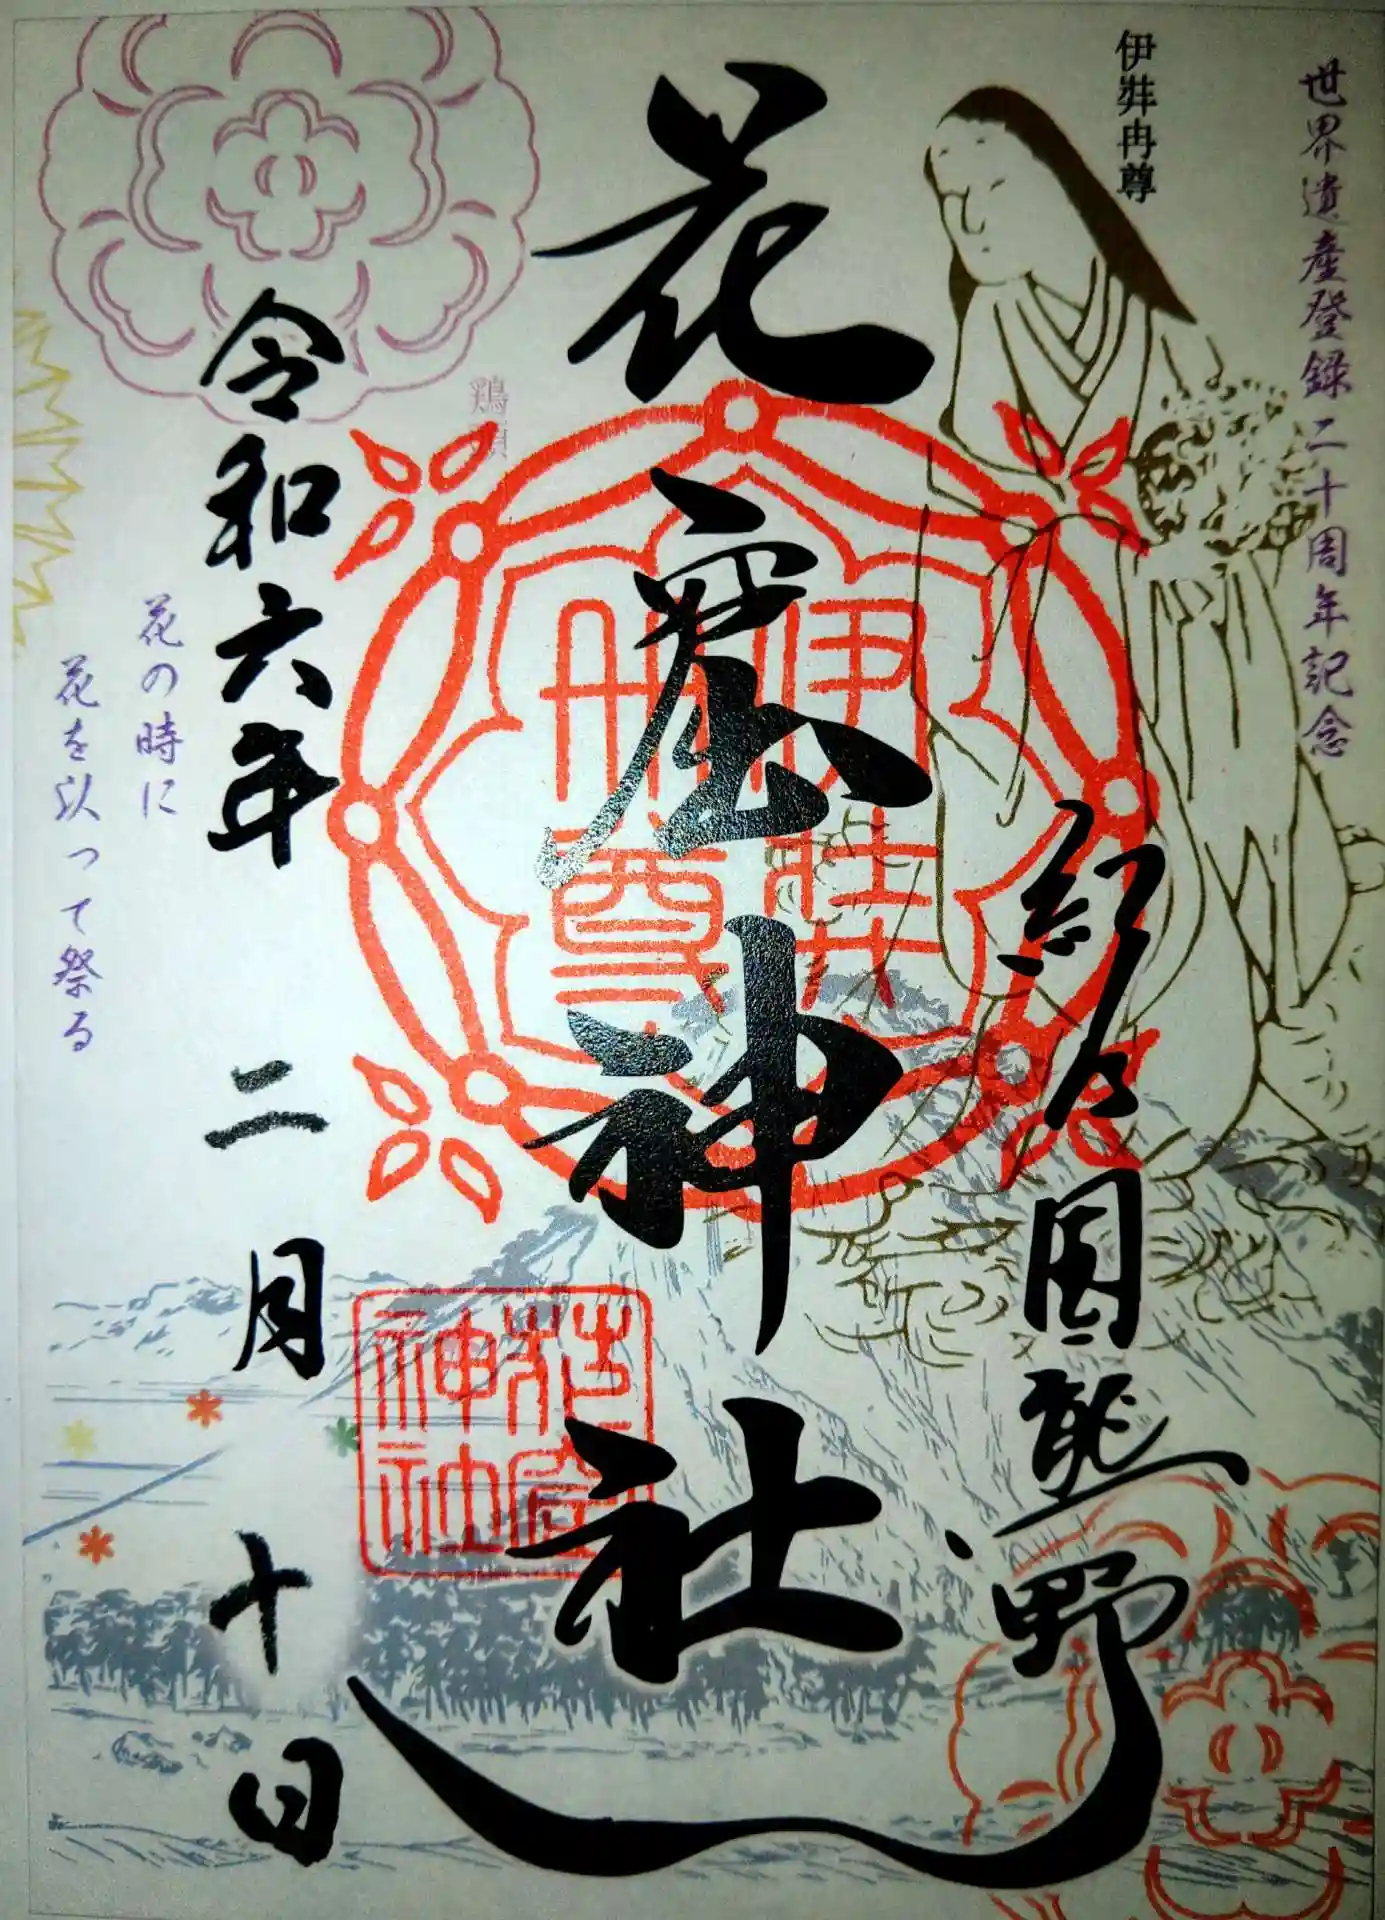 世界遺産登録二十周年記念
伊弉冉尊
紀乃国熊野
花窟神社
伊弉
冊尊
花窟
神社
令和六年 二月 十日
花の時に
花を以って祭る